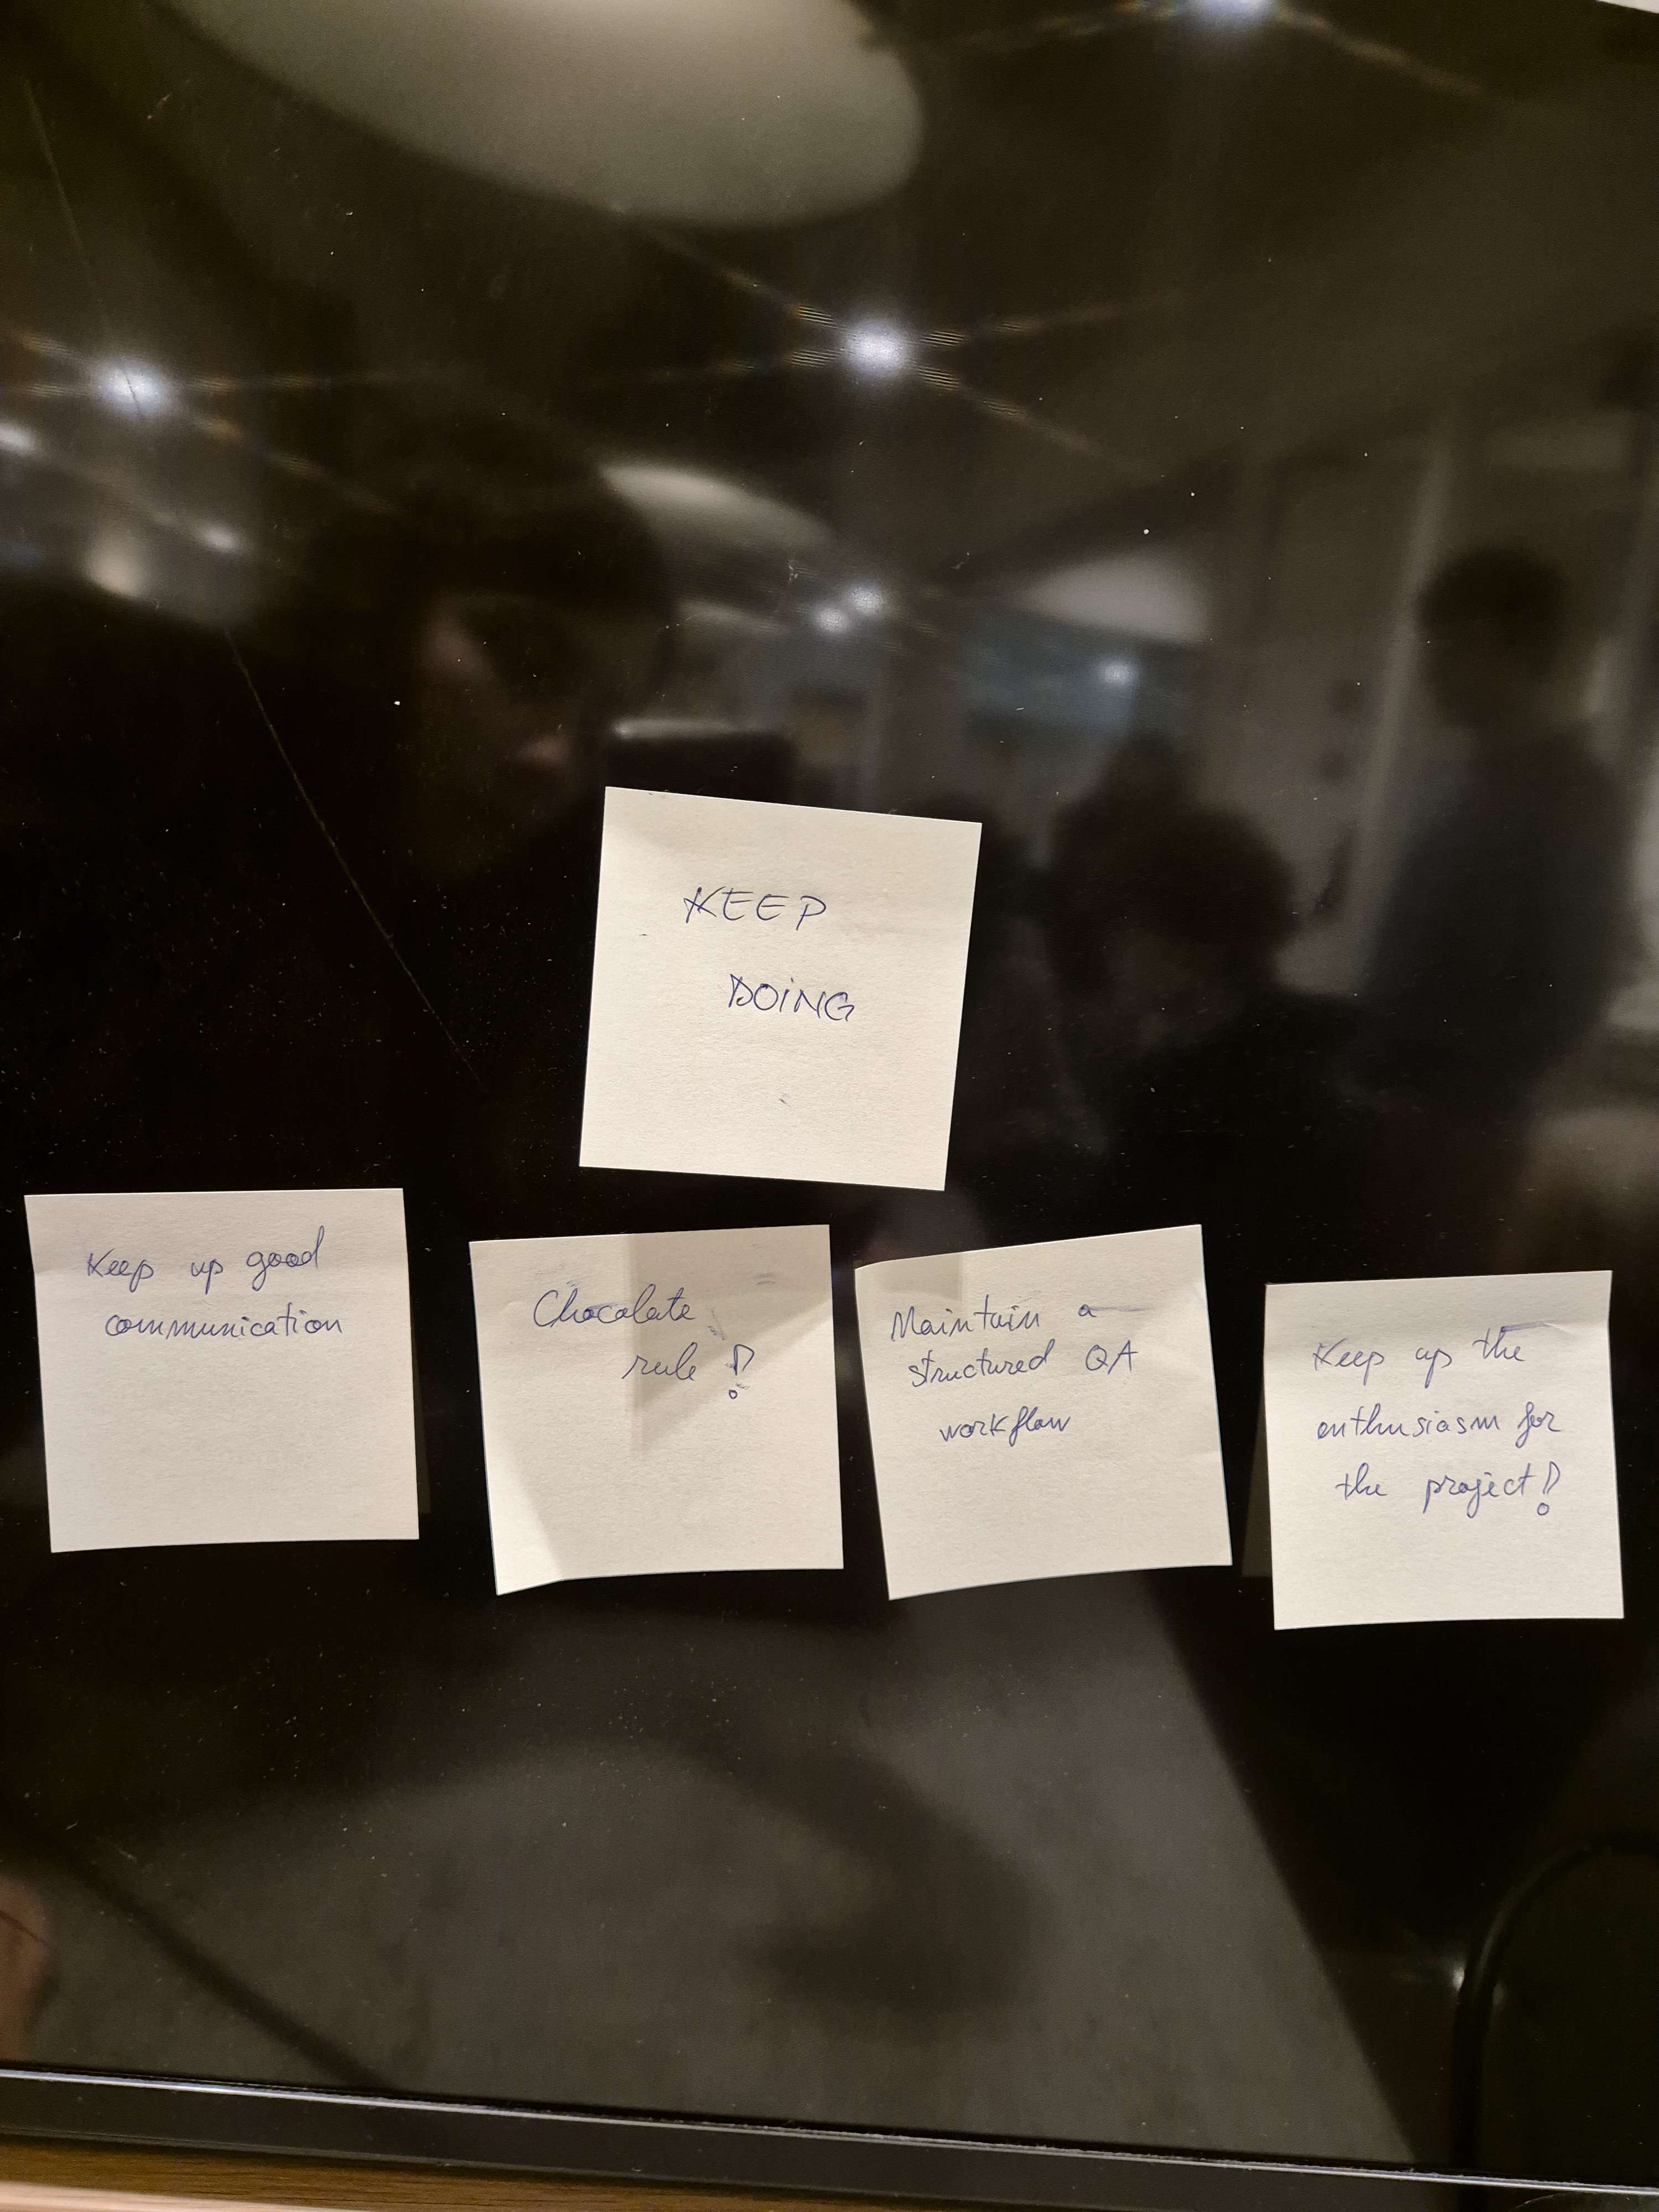 KEEP
DOiNG
Keep up good
communication
Chocolate
rule!
Maintain a
structured QA
workflow
Keep up the
enthusiasm for
the project!